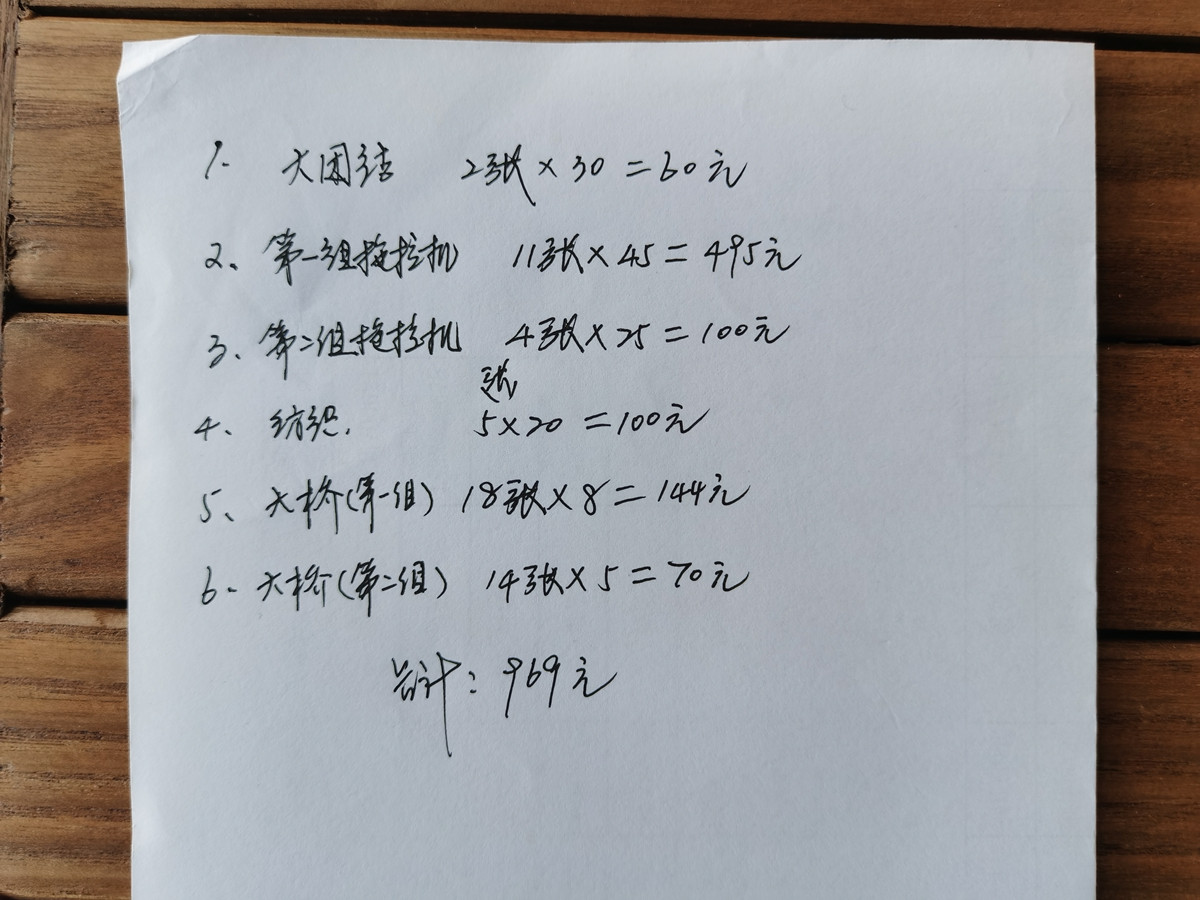 1. 大团结 2张×30=60元
2、第一组拖拉机 11张×45=495元
3、第二组拖拉机 4张×25=100元
张
4、纺织. 5×20=100元
5、大桥(第一组) 18张×8=144元
6. 大桥(第二组) 14张×5=70元
总计:969元